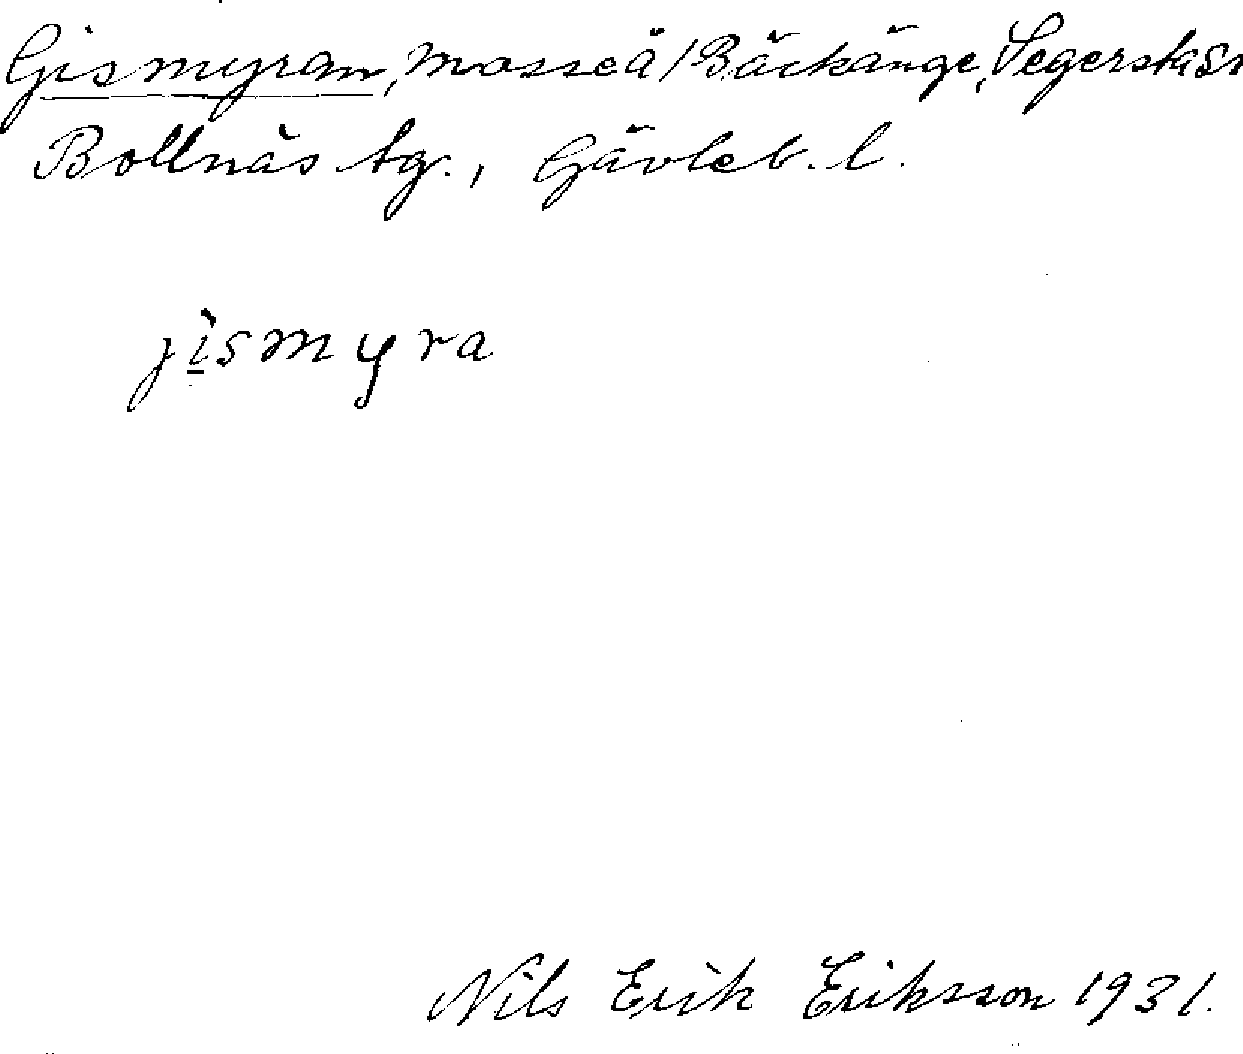 Gismyran, mosse å /Bäckänge, Segersta sn
Bollnäs tg., Gävleb. l.
jismyra
Nils Erik Eriksson 1931.